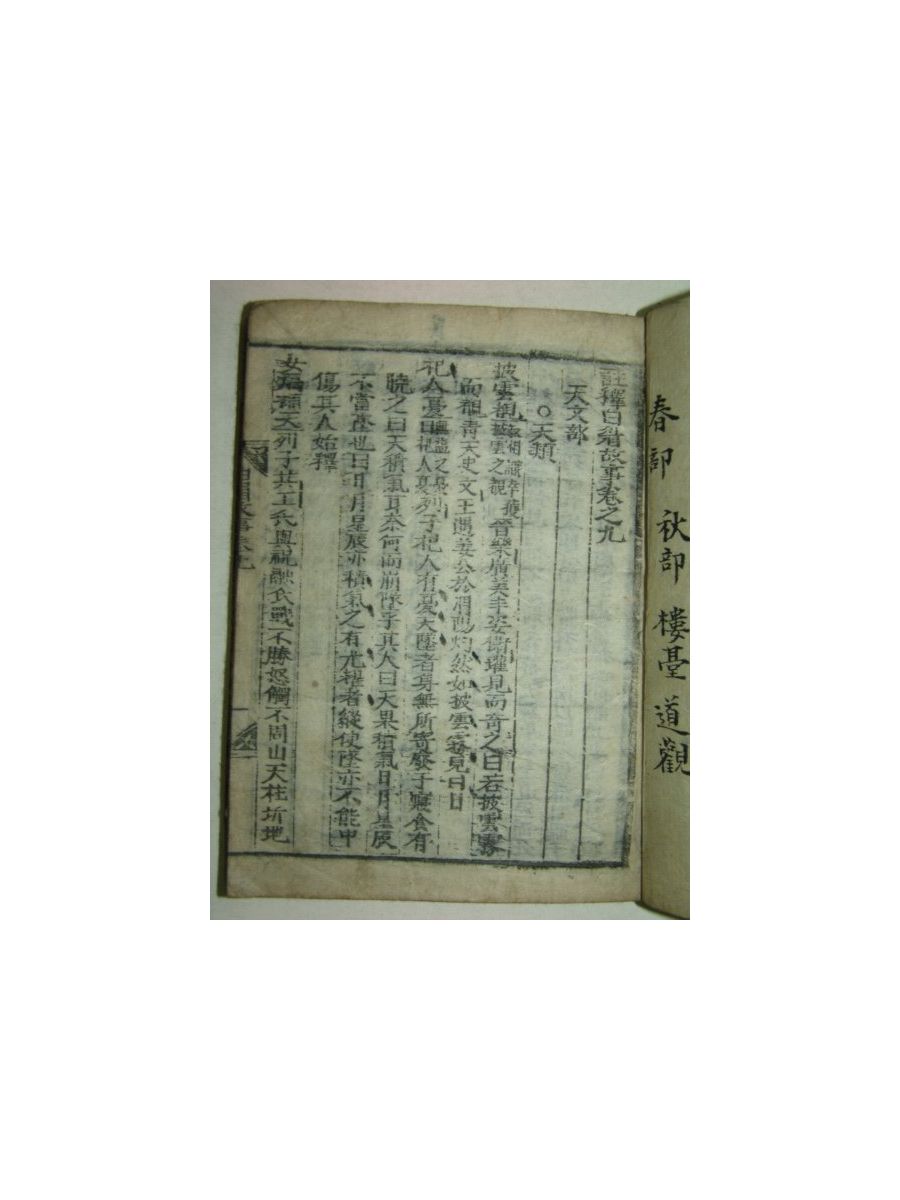 春部 秋部 樓臺 道觀
註釋白眉故事卷之九
天文部
○天類
披雲覩 披雲之覩 晉樂廣美丰姿衛瓘見而奇之曰若披雲霧
而覩青天史文王遇姜公於渭陽灼然如披雲霧見白日
杞人憂曰杞人憂列子杞人有憂天墜者身無所寄廢于寢食有
曉之曰天積氣耳奈何而崩墜乎其人曰天果積氣日月星辰
不當墜也曰日月星辰亦積氣之有光耀者縱使墜亦不能中
傷其人始釋
女媧補天列子共工氏與祝融氏戰不勝怒觸不周山天柱折地